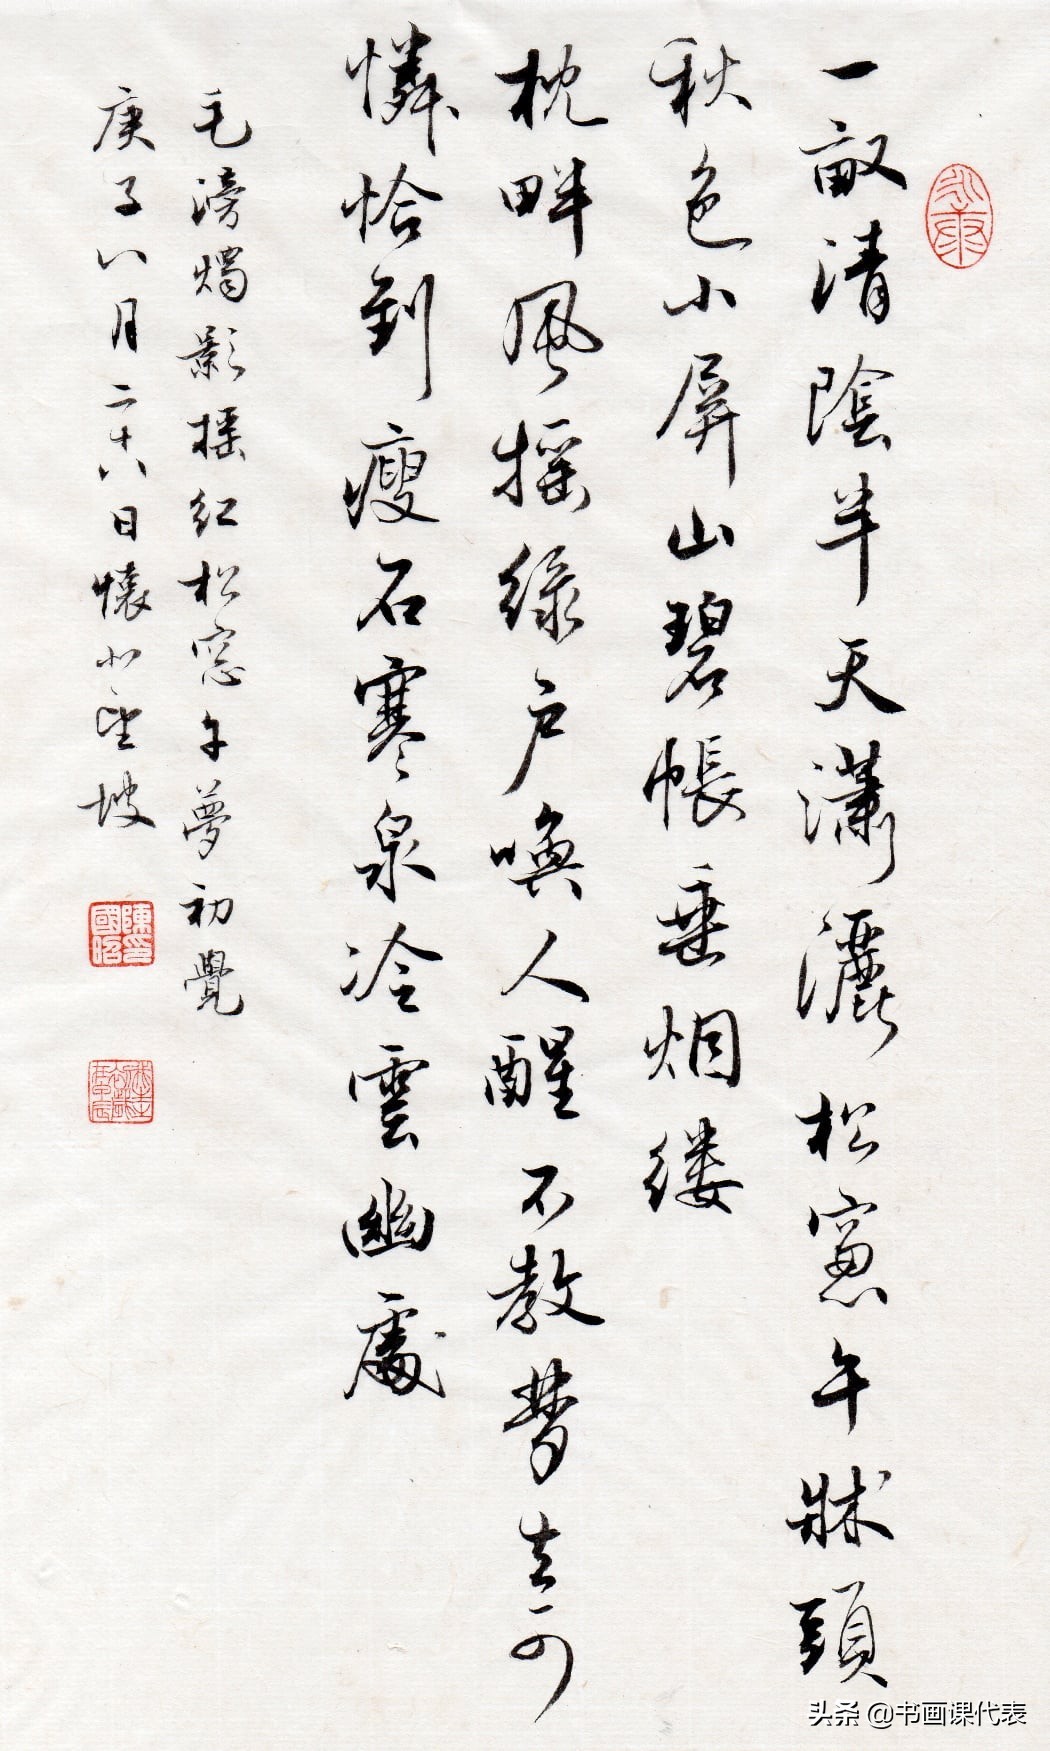 一畝清陰半天瀟灑松窓午牀頭
秋色小屏山碧帳垂烟缕
枕畔風摇绿户喚人醒不教夢去可
憐恰到瘦石寒泉冷雲幽處
毛滂燭影摇红松窓午夢初覺
庚子八月二十八日懐北望坡
永康
陳國昭印
头条 @书画课代表